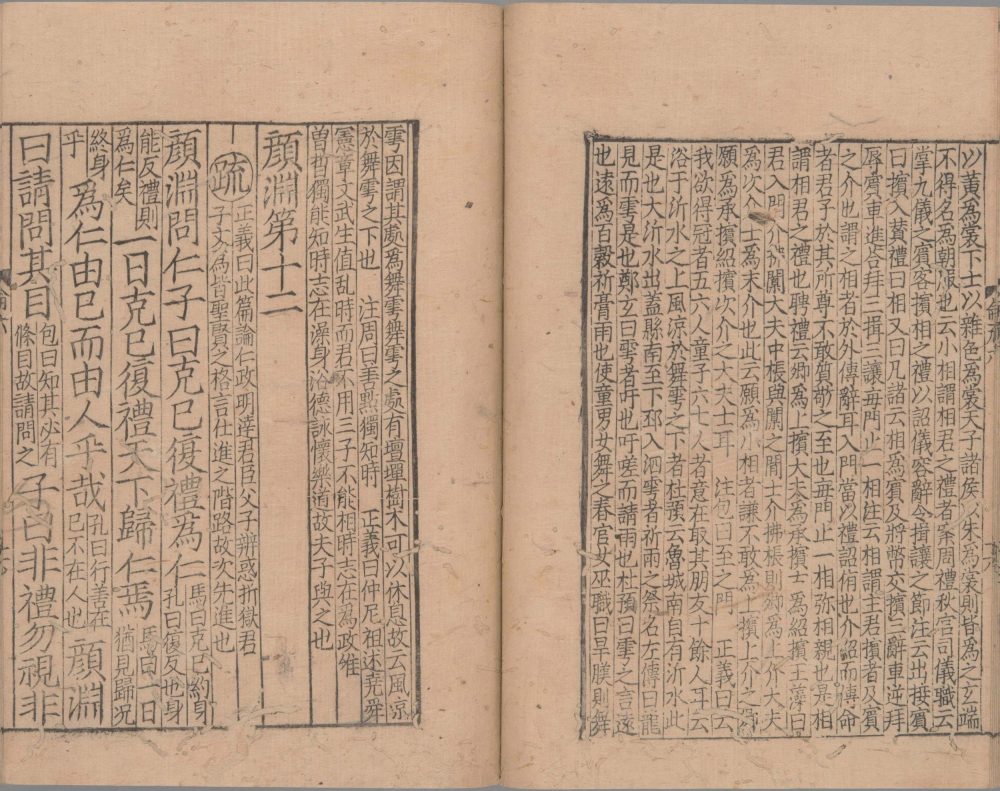 以黃爲裳下士以雜色爲裳天子諸侯以朱爲裳則皆爲之玄端
不得名爲朝服也云小相謂相君之禮者案周禮秋官司儀職云
掌九儀之賓客擯相之禮以詔儀容辭令揖讓之節注云出接賓
曰擯入賛禮曰相又曰凡諸云相爲賓及將幣交擯三辭車逆拜
辱賓車進荅拜三揖三讓毎門止一相注云相謂主君擯者及賓
之介也謂之相者於外傳辭耳入門當以禮詔侑也介紹而傳命
者君子於其所尊不敢質敬之至也毎門止一相弥相親也是相
謂相君之禮也聘禮云卿爲上擯大夫爲承擯士爲紹擯玉藻曰
君入門介拂闑大夫中棖與闑之間士介拂棖則卿爲上介大夫
爲次介士爲末介也此云願爲小相者謙不敢爲上擯上介之卿
願爲承擯紹擯次介之大夫士耳 注包曰至之門 正義曰云
我欲得冠者五六人童子六七人者意在取其朋友十餘人耳云
浴于沂水之上風涼於舞雩之下者杜預云魯城南自有沂水此
是也大沂水出蓋縣南至下邳入泗雩者祈雨之祭名左傳曰龍
見而雩是也鄭玄曰雩者吁也吁嗟而請雨也杜預曰雩之言遠
也遠爲百穀祈膏雨也使童男女舞之春官女巫職曰旱暵則舞
雩因謂其處爲舞雩舞雩之處有壇墠樹木可以休息故云風涼
於舞雩之下也 注周曰善點獨知時 正義曰仲尼祖述堯舜
憲章文武生値乱時而君不用三子不能相時志在爲政唯
曾晳獨能知時志在澡身浴德詠懷樂道故夫子與之也
顏淵第十二
疏 正義曰此篇論仁政明達君臣父子辨惑折獄君子文爲皆聖賢之格言仕進之階路故次先進也
顏淵問仁子曰克己復禮爲仁 馬曰克己約身孔曰復反也身
能反禮則爲仁矣 一日克己復禮天下歸仁焉 馬曰一日猶見歸况
終身乎 爲仁由己而由人乎哉 孔曰行善在己不在人也 顏淵
曰請問其目 包曰知其必有條目故請問之 子曰非禮勿視非